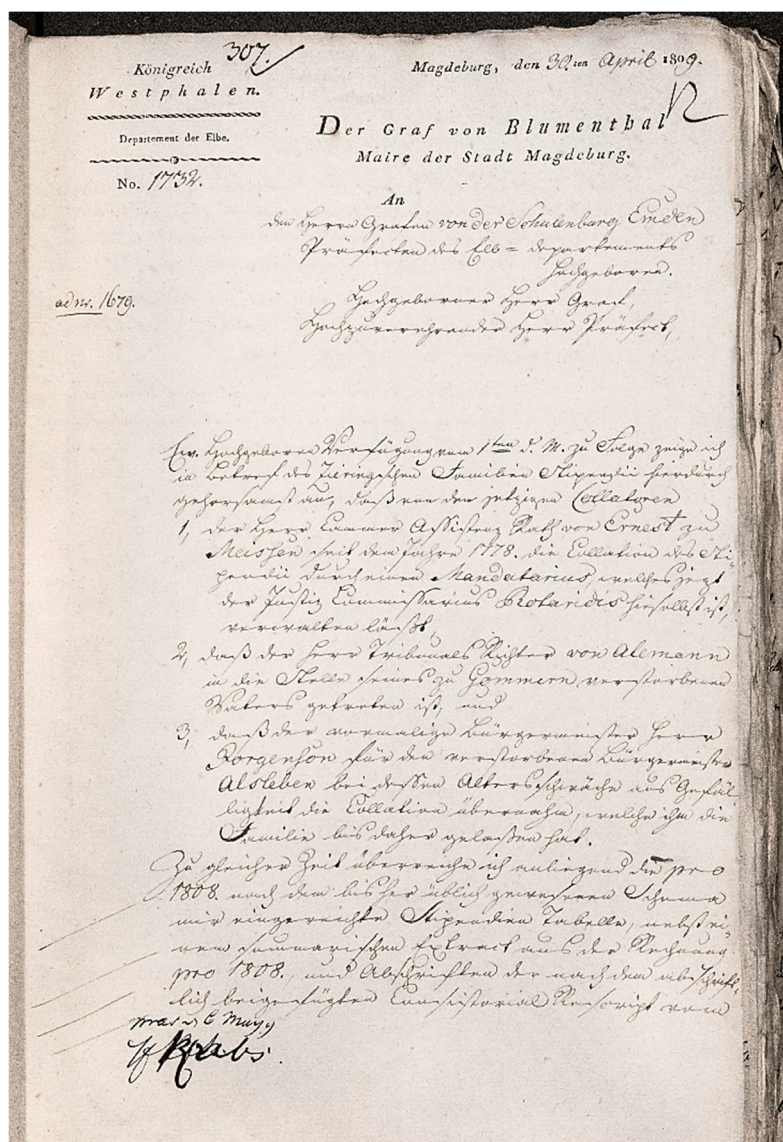 307.
Königreich
Westphalen.
Departement der Elbe.
No. 1732.
Magdeburg, den 30ten April 1809.
Der Graf von Blumenthal
Maire der Stadt Magdeburg.
An
den Herrn Grafen von der Schulenburg Emden
Präfecten des Elb = departements
Hochgeboren.
ad nr. 1679.
Hochgeborner Herr Graf,
Hochzuverehrender Herr Präfect,
Ew. Hochgeboren Verfügung vom 1ten d. M. zu Folge zeige ich
in Betref des Familien Stipendii hierdurch
gehorsamst an, daß von den jetzigen Collatoren
1, der Herr Cammer Assistenz Rath von Ernest zu
Meissen seit dem Jahre 1778. die Collation des Sti-
pendii durch einen Mandatarius, welches jetzt
der Justiz Commissarius Rotaridis hieselbst ist,
verwalten läßt,
2, daß der Herr Tribunals Richter von Alemann
in die Stelle seines zu Gommern verstorbenen
Vaters getreten ist, und
3, daß der vormalige Bürgermeister Herr
für den verstorbenen Bürgermeister
Alsleben bei dessen Altersschwäche aus Gefäl-
ligkeit die Collation übernahm, welche ihm die
Familie bis daher gelaßen hat.
Zu gleicher Zeit überreiche ich anliegend die pro
1808. nach dem bisher üblich gewesenen Schema
mir eingereichte Stipendien Tabelle, nebst ei-
nem summarischen Extract aus der Rechnung
pro 1808. und Abschriften der nach dem abschrift-
lich beigefügten Consistorial Rescript vom